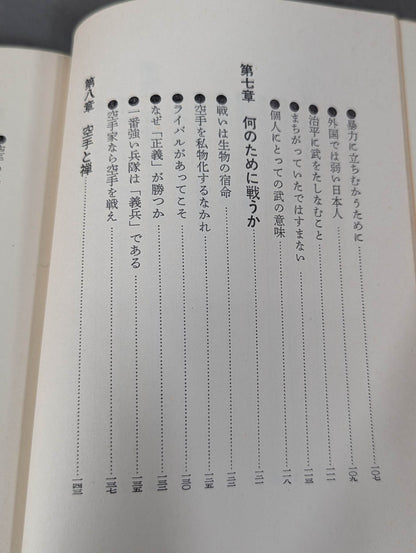 ●暴力に立ちむかうために……一〇七
●外国では弱い日本人……一〇九
●治平に武をたしなむこと……一一一
●まちがっていたではすまない……一一三
●個人にとっての武の意味……一一八
第七章 何のために戦うか……一二一
●戦いは生物の宿命……一二二
●空手を私物化するなかれ……一二五
●ライバルがあってこそ……一三〇
●なぜ「正義」が勝つか……一三三
●一番強い兵隊は「義兵」である……一三五
●空手家なら空手を戦え……一三七
第八章 空手と禅……一四三